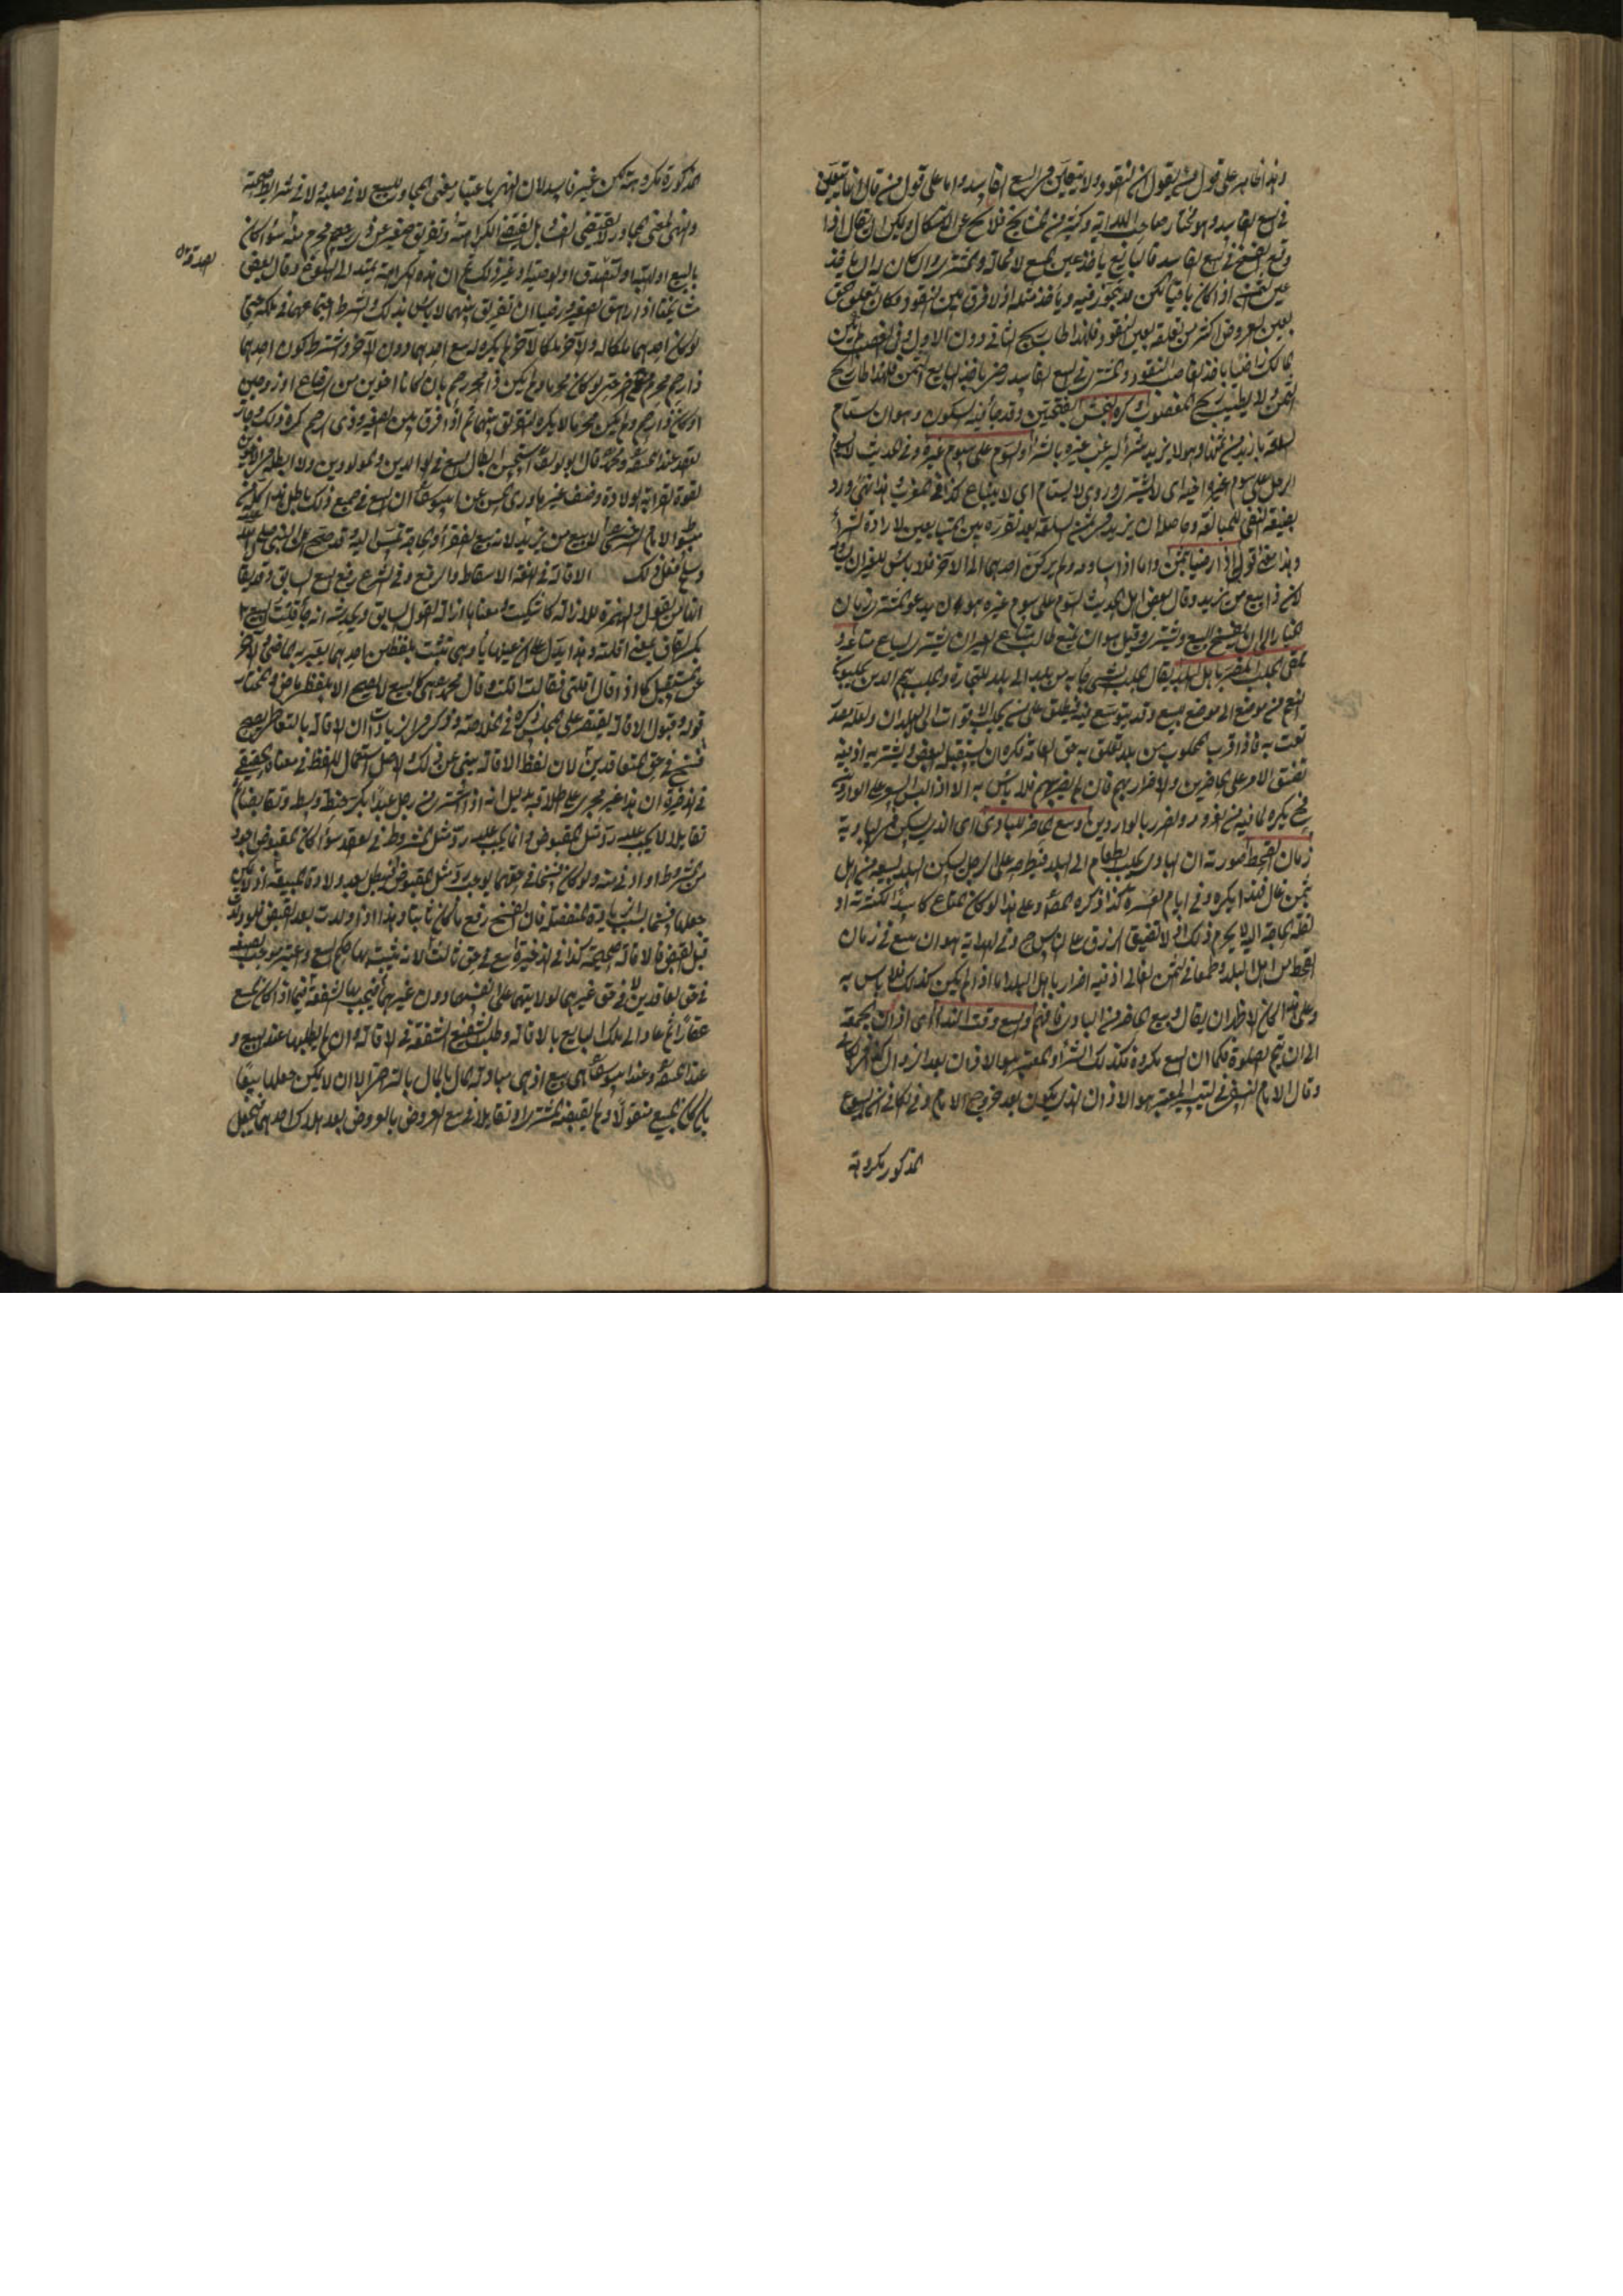 وهذا ظاهر على قول من يقول ان النقود لا تتعين في البيع الفاسد واما على قول من قال انها تتعين
في البيع الفاسد وهو مختار صاحب الهداية وكثير من المشايخ فلا يخ عن الاشكال ويمكن ان يقال اذا
وقع الفسخ في البيع الفاسد فالبايع يأخذ عين المبيع لا محالة والمشترى وان كان له ان يأخذ
عين الثمن اذا كان باقيا لكن قد يتجوز فيه ويأخذ مثله اذ لا فرق بين النقود فكان تعلق حق
بعين العروض اكثر من تعلقه بعين النقود فلهذا طاب ربح الثانى دون الاول وفى الغصب
المالك ايضا يأخذ الغاصب النقود والمشترى في البيع الفاسد رضى بأخذ البايع الثمن فلهذا طاب ربح
الثمن ولا يطيب ربح المغصوب وكره النجش بفتحتين وقد جاء فيه السكون وهو ان يستام
السلعة بازيد من ثمنها وهو لا يريد شراء ليرغب غيره بالشراء والسوم على سوم غيره وفى الحديث لا يسوم
الرجل على سوم غيره اخيه اى لا يشترى وروى لا يستام اى لا يبتاع كذا في المغرب وهذا نهى ورد
بصيغة النفى للمبالغة وحاصله ان يزيد في ثمن السلعة بعد تقرره بين المتبايعين لارادة الشراء
وهذا معنى قوله اذا رضيا بثمن واما اذا ساومه ولم يركن احدهما الى الاخر فلا بأس للغير ان يساومه
لانه ذا بيع من يزيد وقال بعض اهل الحديث السوم على سوم غيره هو ان يدعو المشترى زمان
الخيار الى ان يفسخ البيع ويشترى وقيل هو ان يمنع طالب متاع لغير ان يشترى ليباع متاعه و
تلقى الجلب المضر باهل البلد يقال الجلب لشئ جاء به من بلد الى بلد للتجارة والجلب هم الذين يجلبون
المتاع من موضع الى موضع للبيع وقد يتوسع فيه فيطلق على من يجلب الاقوات الى البلدان ولعله بعد
نعت به فاذا قرب المجلوب من بلد تعلق به حق العامة فكره ان يستقبله البعض ويشتريه اذ فيه
تضيق الامر على الحاضرين والاضرار بهم فان لم يضر بهم فلا بأس به الا اذا لبس السعر على الواردين
فح يكره لما فيه من الغرور والضرر بالواردين وبيع الحاضر للبادى اى الذى يسكن في البادية
زمان القحط صورته ان البادى يجلب الطعام الى البلد فيطرحه على رجل يسكن البلد ليبيعه من اهل
بثمن غال فهذا يكره وفى ايام العسرة كذا ذكره المصنف وعلى هذا لو كان المتاع كاسدا لكثرته او
لقلة الحاجة اليه لا يحرم ذلك اذ لا تضيق الرزق على الناس ح وفى الهداية هو ان يبيع في زمان
القحط من اهل البلد وطمعا في الثمن الغالى اذ فيه اضرار باهل البلد اما اذا لم يكن كذلك فلا بأس به
وعلى هذا كان الاظهر ان يقال وبيع الحاضر من البادى فافهم والبيع وقت النداء اى اذان الجمعة
الى ان يتم الصلوة فكما ان البيع مكروه فكذلك الشراء والمعتبر هو الاذان بعد الزوال كذا في الكافى
وقال الامام النسفى في التيسير المعتبر هو الاذان الذى يكون بعد خروج الامام وفى الكافى ان البيوع
المذكورة مكروهة
المذكورة مكروهة لكن غير فاسد لان النهى باعتبار معنى المجاور للبيع لا في صلبه ولا في شرايط صحته
والنهى لمعنى المجاور لا يقتضى الفساد بل يقتضى الكراهة وتفريق صغير عن ذى رحم محرم منه سواء كان
بالبيع او الهبة او التصدق او الوصية او غير ذلك ثم ان هذه الكراهة يمتد الى البلوغ وقال بعض
مشايخنا اذا راهق الصغير ورضيا ان تفريق بينهما لا بأس بذلك ولشرط اجتماعهما في ملكه حتى
لو كان احدهما ملكا له والاخر ملكا لآخر لم يكره له بيع احدهما دون الاخر واشترط كون احدهما
ذا رحم محرم من الاخر حتى لو كان محرما ولم يكن ذا رحم بان كانا اخوين من الرضاع او زوجين
او كان ذا رحم ولم يكن محرما لا يكره التفريق بينهما ثم اذا فرق بين الصغير وذى الرحم كره ذلك وجاز
العقد عند ابى حنيفة ومحمد وقال ابو يوسف استحسن ابطال البيع في الوالدين والمولودين ولا ابطل في الاخوين
لقوة القرابة الولادة وضعف غيرها وروى الحسن عن ابى يوسف ان البيع في جميع ذلك باطل كذا ذكر في
مبسوط الامام السرخسى لا بيع من يزيد لانه بيع الفقراء والحاجة تمس اليه وقد صح ان النبى صلى الله عليه
وسلم فعل ذلك الاقالة في اللغة الاسقاط والرفع وفى الشرع رفع البيع السابق وقد يقال
انها من القول والهمزة للازالة كاشكيت ومعناها ازالة القول السابق ويخدشه انه جاء قلت البيع
بكسر القاف بمعنى اقلته وهذا يدل على ان عينها ياء وهى تثبت بلفظين احدهما يعبر به الماضى والاخر
عن المستقبل كما اذا قال اقلنى فقال اقلت وقال محمد هى كالبيع لا يصح الا بلفظ ماض والمختار
قوله وقبول الاقالة يقتصر على المجلس ذكره في الخلاصة وذكر في الزيادات ان الاقالة بالتعاطى يصح
فسخ في حق المتعاقدين لان لفظ الاقالة ينبئ عن ذلك والاصل استعمال اللفظ في معناه الحقيقى
في الذخيرة ان هذا غير مجرى على اطلاقه بدليل انه اذا اشترى من رجل عبدا بكر حنطة وسط وتقابضا ثم
تقايلا لا يجب عليه رد مثل المقبوض وانما يجب عليه رد مثل المشروط في العقد سواء كان المقبوض اجود
من المشروط او ادنى منه ولو كان فسخا في حقهما لوجب رد مثل المقبوض فتبطل بعد ولادة المبيعة اذ لا يمكن
جعلها فسخا بسبب الزيادة المنفصلة فان الفسخ رفع ما كان ثابتا وهذا اذا ولدت بعد القبض فلو ولدت
قبل القبض فالاقالة صحيحة كذا في الذخيرة وبيع في حق ثالث لانه يثبت بها حكم البيع
في حق العاقدين لا في حق غيرهما لولايتهما على انفسهما دون غيرهما فيجب بها الشفعة فيما اذا كان المبيع
عقارا ثم عاد الى ملك البايع بالاقالة وطلب الشفيع الشفعة في الاقالة وان لم يطلبها عند البيع و
عند ابى حنيفة وعند ابى يوسف هى بيع اذ هى مبادلة المال بالمال بالتراضى الا ان لا يمكن جعلها بيعا
بان كان المبيع منقولا ولم يقبضه المشترى او تقايلا في بيع العروض بالعروض بعد هلاك احدهما فيجعل